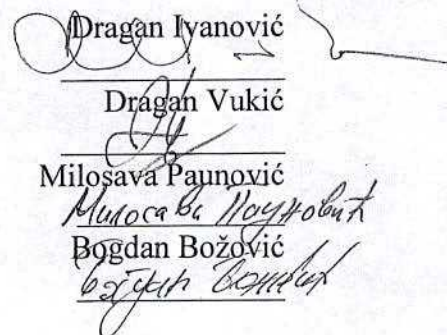 Dragan Ivanović
Dragan Vukić
Milosava Paunović
Милосава Пауновић
Bogdan Božović
Богдан Божовић